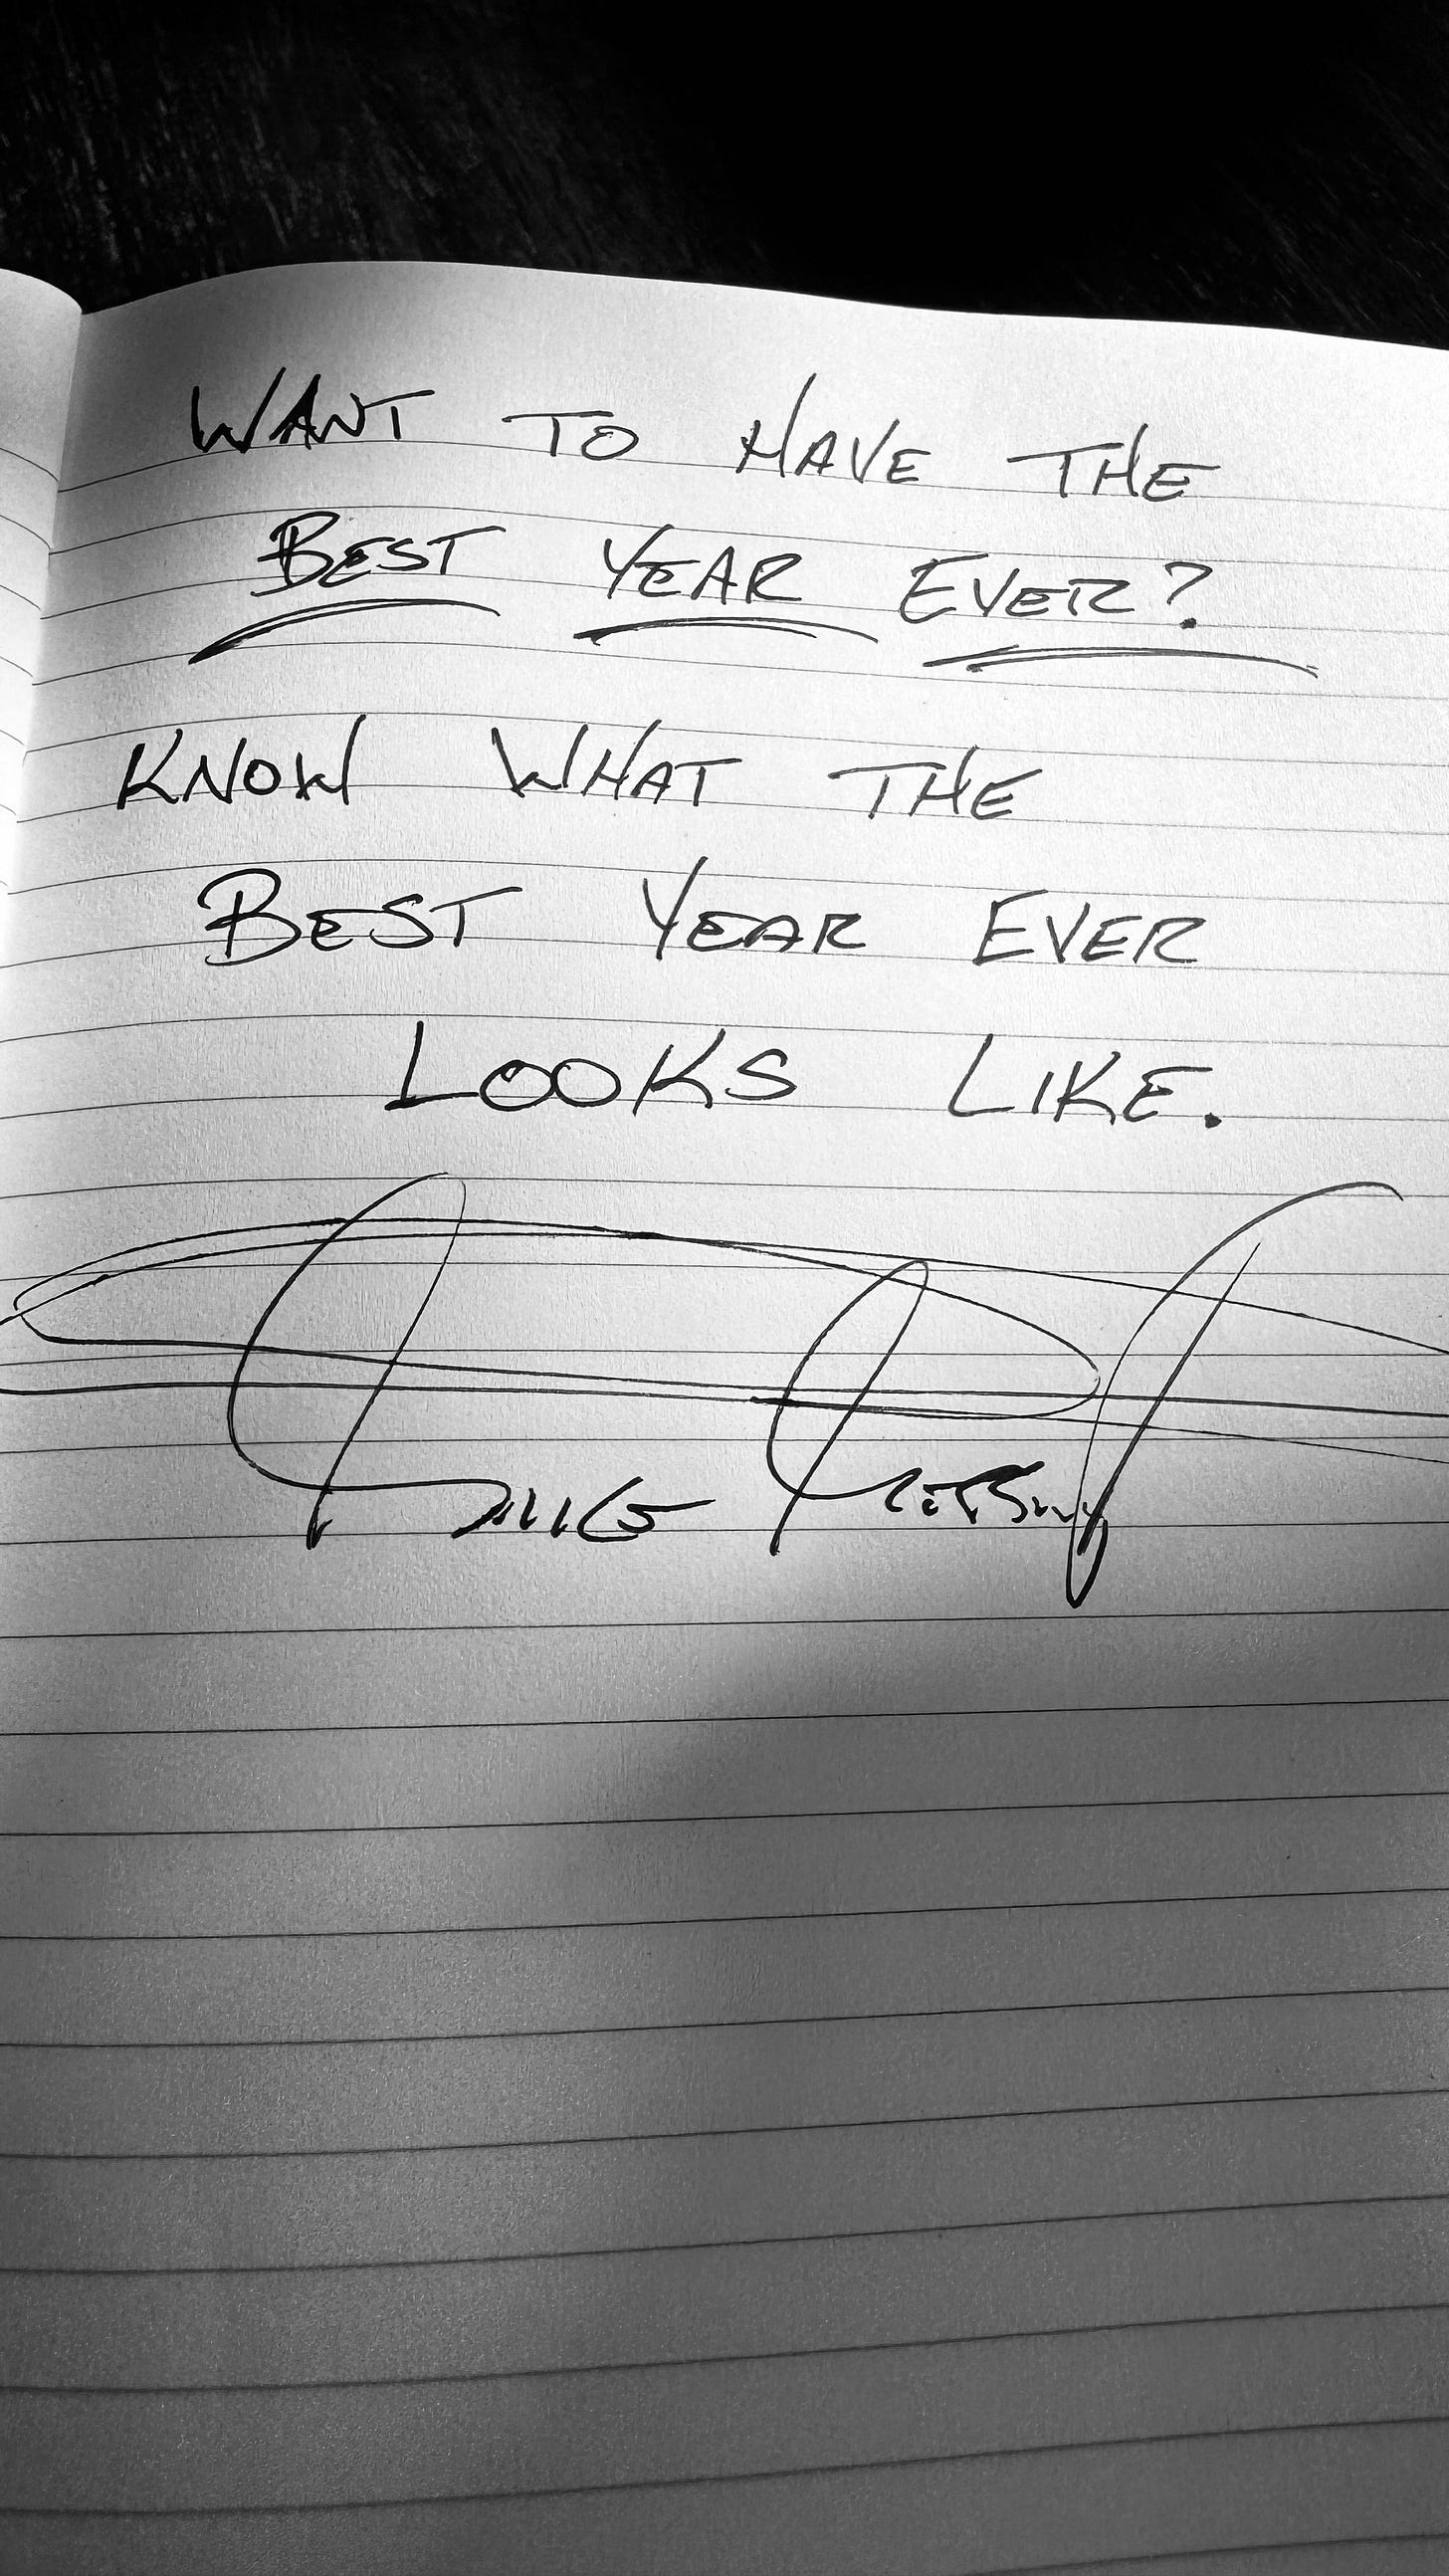 WANT TO HAVE THE
BEST YEAR EVER?
KNOW WHAT THE
BEST YEAR EVER
LOOKS LIKE.